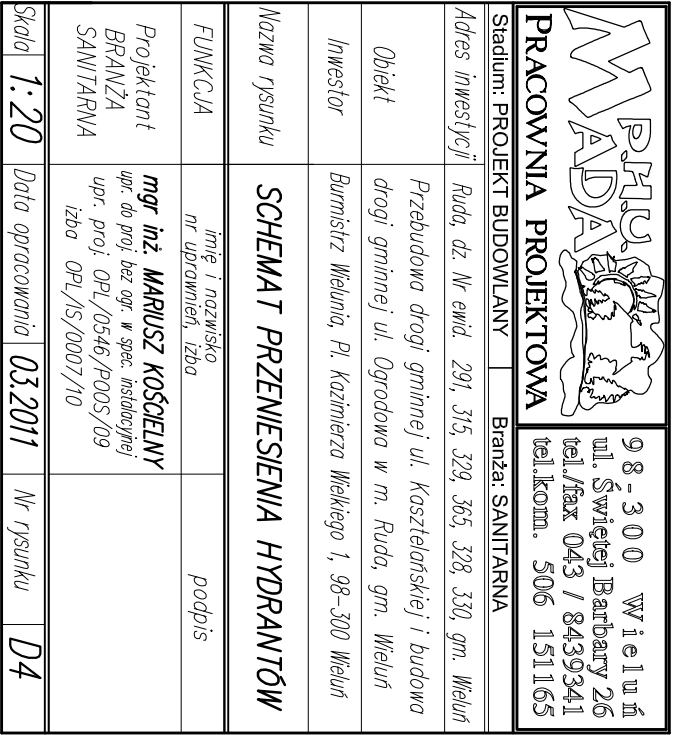 P.H.U.
MADA
PRACOWNIA PROJEKTOWA
98-300 Wieluń
ul. Świętej Barbary 26
tel./fax 043 / 8439341
tel.kom. 506 151165
Stadium: PROJEKT BUDOWLANY Branża: SANITARNA
Adres inwestycji Ruda, dz. Nr ewid. 291, 315, 329, 365, 328, 330, gm. Wieluń
Obiekt Przebudowa drogi gminnej ul. Kasztelańskiej i budowa
drogi gminnej ul. Ogrodowa w m. Ruda, gm. Wieluń
Inwestor Burmistrz Wielunia, Pl. Kazimierza Wielkiego 1, 98-300 Wieluń
Nazwa rysunku SCHEMAT PRZENIESIENIA HYDRANTÓW
FUNKCJA imię i nazwisko podpis
nr uprawnień, izba
Projektant mgr inż. MARIUSZ KOŚCIELNY
BRANŻA upr. do proj. bez ogr. w spec. instalacyjnej
SANITARNA upr. proj. OPL/0546/POOS/09
izba OPL/IS/0007/10
Skala 1:20 Data opracowania 03.2011 Nr rysunku D4